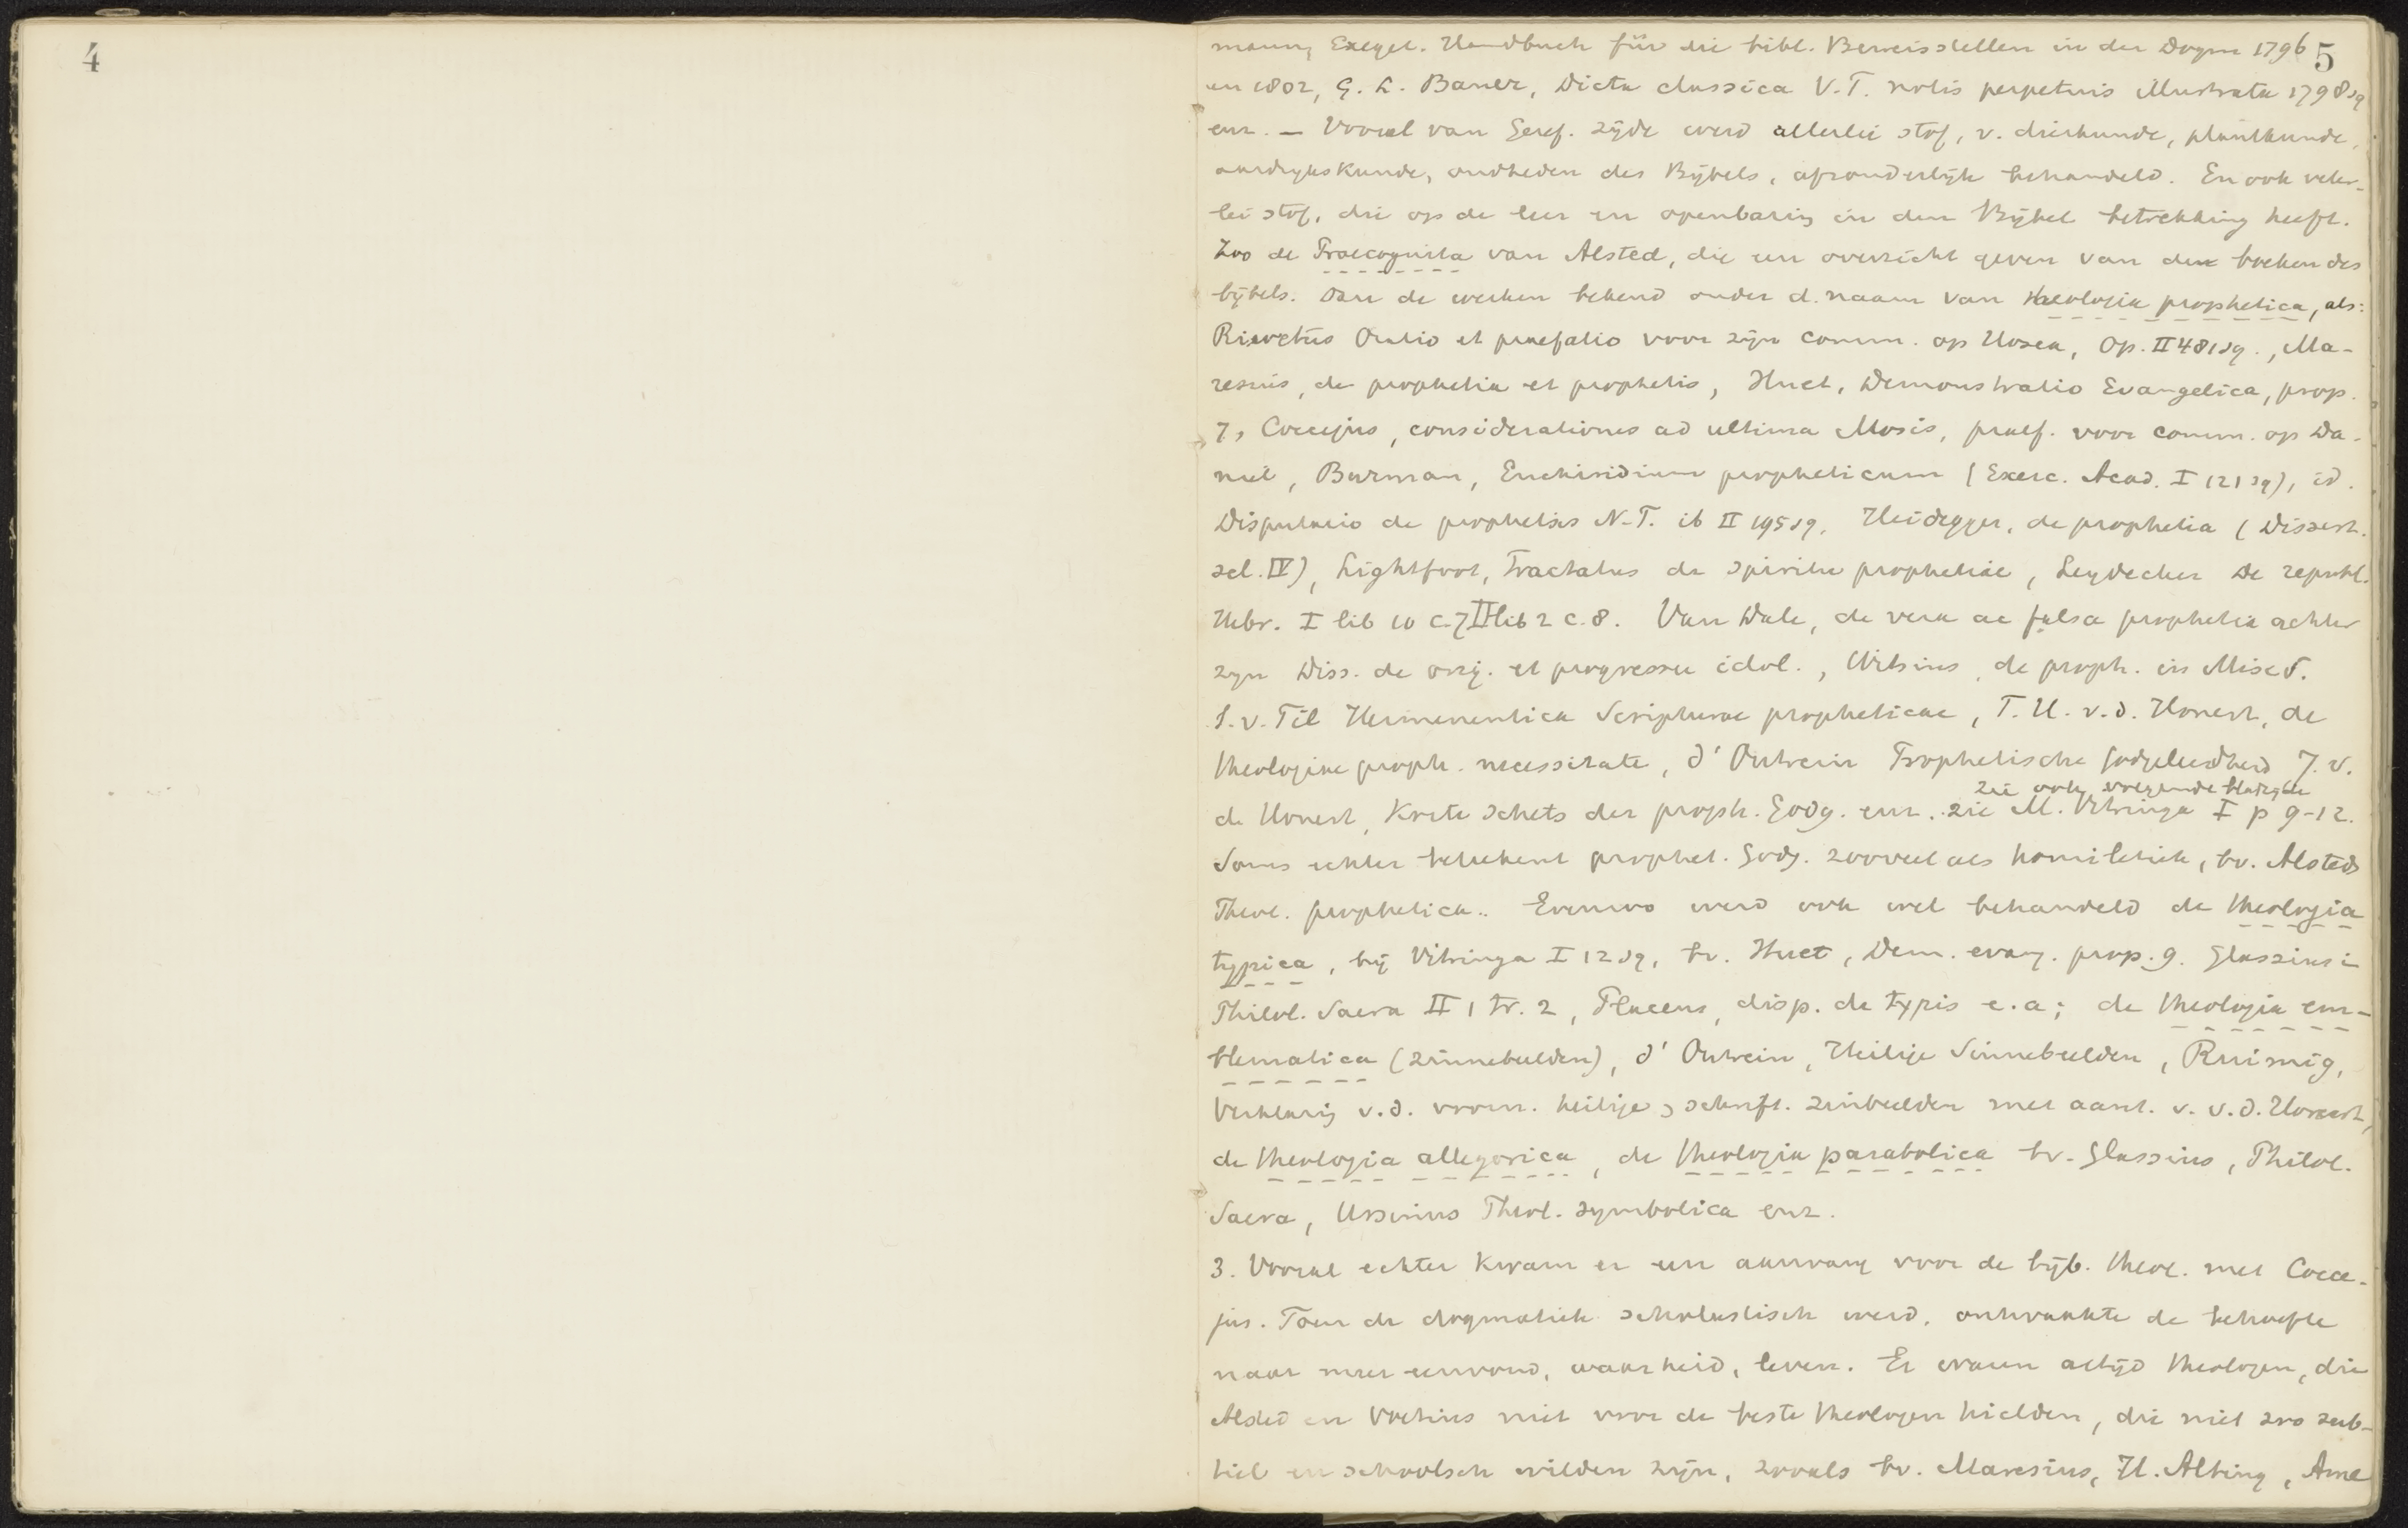 4
5
mann, Exeget. Handbuch für die bibl. Beweisstellen in der Dogm 1796
en 1802, G. L. Bauer, Dicta classica V.T. notis perpetuis illustrata 1798 sq
enz. — Vooral van Geref. zijde werd allerlei stof, v. dierkunde, plantkunde,
aardrijkskunde, oudheden des Bijbels, afzonderlijk behandeld. En ook veler-
lei stof, die op de leer en openbaring in den Bijbel betrekking heeft.
Zoo de Praecognita van Alsted, die een overzicht geven van de boeken des
bijbels. Dan de werken bekend onder d. naam van theologia prophetica, als:
Rivetus Oratio et praefatio voor zijn comm. op Hosea, Op. II 481 sq., Ma-
resius, de prophetia et prophetis, Huet, Demonstratio Evangelica, prop.
7, Coccejus, considerationes ad ultima Mosis, praef. voor comm. op Da-
niel, Burman, Enchiridium propheticum (Exerc. Acad. I 121 sq), id.
Disputatio de prophetis N.T. ib II 195 sq, Heidegger, de prophetia (Dissert.
sel. IV), Lightfoot, Tractatus de spiritu prophetiae, Leydecker De republ.
Hebr. I lib 10 c. 7 II lib 2 c. 8. Van Dale, de vera ac falsa prophetia achter
zijn Diss. de orig. et progressu idol., Witsius, de proph. in Misc S.
S. v. Til Hermeneutica Scripturae propheticae, T. H. v. d. Honert, de
theologiae proph. necessitate, d' Outrein Prophetische godgeleerdheid J. v.
zie ook volgende bladzijde
de Honert, Korte schets der proph. Godg. enz. zie M. Vitringa I p 9-12.
Soms echter beteekent prophet. Godg. zooveel als homiletiek, bv. Alsteds
Theol. prophetica.. Evenzoo werd ook wel behandeld de theologia
typica, bij Vitringa I 12 sq, bv. Huet, Dem. evang. prop. 9. Glassius in
Philol. Sacra II 1 tr. 2, Placeus, disp. de typis e.a; de theologia em-
blematica (zinnebeelden), d' Outrein, Heilige Sinnebeelden, Ruimig,
Verklaring v.d. voorn. heilige schrift. zinbeelden met aant. v. v.d. Honert,
de theologia allegorica, de theologia parabolica bv. Glassius, Philol.
Sacra, Ursinus Theol. symbolica enz.
3. Vooral echter kwam er een aanvang voor de bijb. theol. met Cocce-
jus. Toen de dogmatiek scholastisch werd, ontwaakte de behoefte
naar meer eenvoud, waarheid, leven. Er waren altijd theologen, die
Alsted en Voetius niet voor de beste theologen hielden, die niet zoo sub-
tiel en schoolsch wilden zijn, zooals bv. Maresius, H. Alting, Ame